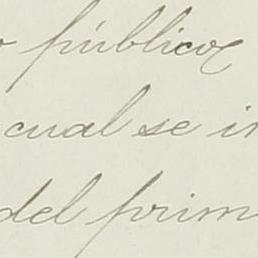 público
cual se in
del prim